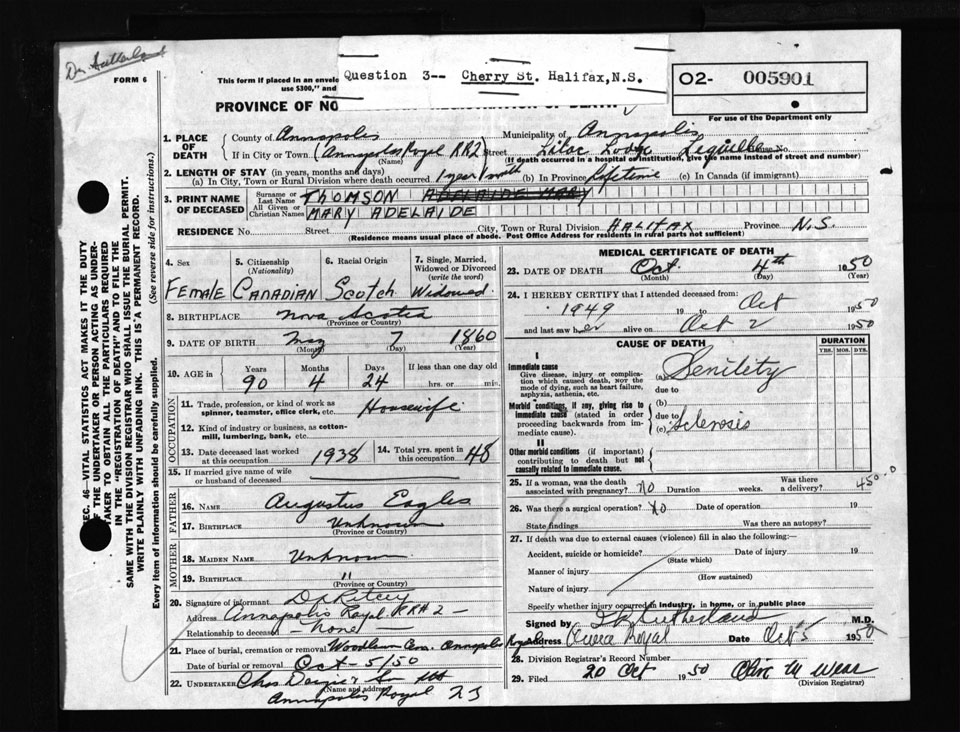 Dr Sutherland
FORM 6
This form if placed in an envelo
use $300," and
Question 3-- Cherry St. Halifax, N.S.
O2- 005901
For use of the Department only
PROVINCE OF NO REGISTRATION OF DEATH
1. PLACE OF DEATH
County of Annapolis Municipality of Annapolis
If in City or Town (Annapolis Royal RR2) Street Lilac Lodge Lequille House No.
(Name) (If death occurred in a hospital or institution, give the name instead of street and number)
2. LENGTH OF STAY (in years, months and days)
(a) In City, Town or Rural Division where death occurred 1 year 1 month (b) In Province Lifetime (c) In Canada (if immigrant)
3. PRINT NAME OF DECEASED
Surname or Last Name THOMSON ADELAIDE MARY
All Given or Christian Names MARY ADELAIDE
RESIDENCE No. Street City, Town or Rural Division HALIFAX Province N.S.
(Residence means usual place of abode. Post Office Address for residents in rural parts not sufficient)
4. Sex
5. Citizenship (Nationality)
6. Racial Origin
7. Single, Married, Widowed or Divorced (write the word)
FEMALE CANADIAN Scotch Widowed
8. BIRTHPLACE Nova Scotia
(Province or Country)
9. DATE OF BIRTH May 7 1860
(Month) (Day) (Year)
10. AGE in Years Months Days If less than one day old
90 4 24 hrs. or min.
OCCUPATION
11. Trade, profession, or kind of work as spinner, teamster, office clerk, etc. Housewife
12. Kind of industry or business, as cotton-mill, lumbering, bank, etc.
13. Date deceased last worked at this occupation 1938
14. Total yrs. spent in this occupation 48
15. If married give name of wife or husband of deceased
FATHER
16. NAME Augustus Eagles
17. BIRTHPLACE Unknown
(Province or Country)
MOTHER
18. MAIDEN NAME Unknown
19. BIRTHPLACE "
(Province or Country)
20. Signature of informant
Address Annapolis Royal RR# 2 -
Relationship to deceased - none
21. Place of burial, cremation or removal Woodlawn Cem. Annapolis Royal
Date of burial or removal Oct - 5/50
22. UNDERTAKER Chas
(Name and address)
Annapolis Royal
MEDICAL CERTIFICATE OF DEATH
23. DATE OF DEATH Oct. 4th 1950
(Month) (Day) (Year)
24. I HEREBY CERTIFY that I attended deceased from:
1949 19 to Oct 1950
and last saw her alive on Oct 2 1950
CAUSE OF DEATH
DURATION
YRS. MOS. DYS.
I
Immediate cause
Give disease, injury or complication which caused death, not the mode of dying, such as heart failure, asphyxia, asthenia, etc.
(a) Senility
due to
Morbid conditions, if any, giving rise to immediate cause (stated in order proceeding backwards from immediate cause).
(b)
due to
(c) Sclerosis
II
Other morbid conditions (if important) contributing to death but not causally related to immediate cause.
25. If a woman, was the death associated with pregnancy? No Duration weeks. Was there a delivery?
450.0
26. Was there a surgical operation? No Date of operation 19
State findings Was there an autopsy?
27. If death was due to external causes (violence) fill in also the following:—
Accident, suicide or homicide? Date of injury 19
(State which)
Manner of injury
(How sustained)
Nature of injury
Specify whether injury occurred in industry, in home, or in public place
Signed by Sutherland M.D.
Address Royal Date Oct 5 1950
28. Division Registrar's Record Number
29. Filed 20 Oct 1950
(Division Registrar)
SEC. 46—VITAL STATISTICS ACT MAKES IT THE DUTY OF THE UNDERTAKER OR PERSON ACTING AS UNDERTAKER TO OBTAIN ALL THE PARTICULARS REQUIRED IN THE "REGISTRATION OF DEATH" AND TO FILE THE SAME WITH THE DIVISION REGISTRAR WHO SHALL ISSUE THE BURIAL PERMIT.
WRITE PLAINLY WITH UNFADING INK. THIS IS A PERMANENT RECORD.
Every item of information should be carefully supplied. (See reverse side for instructions.)